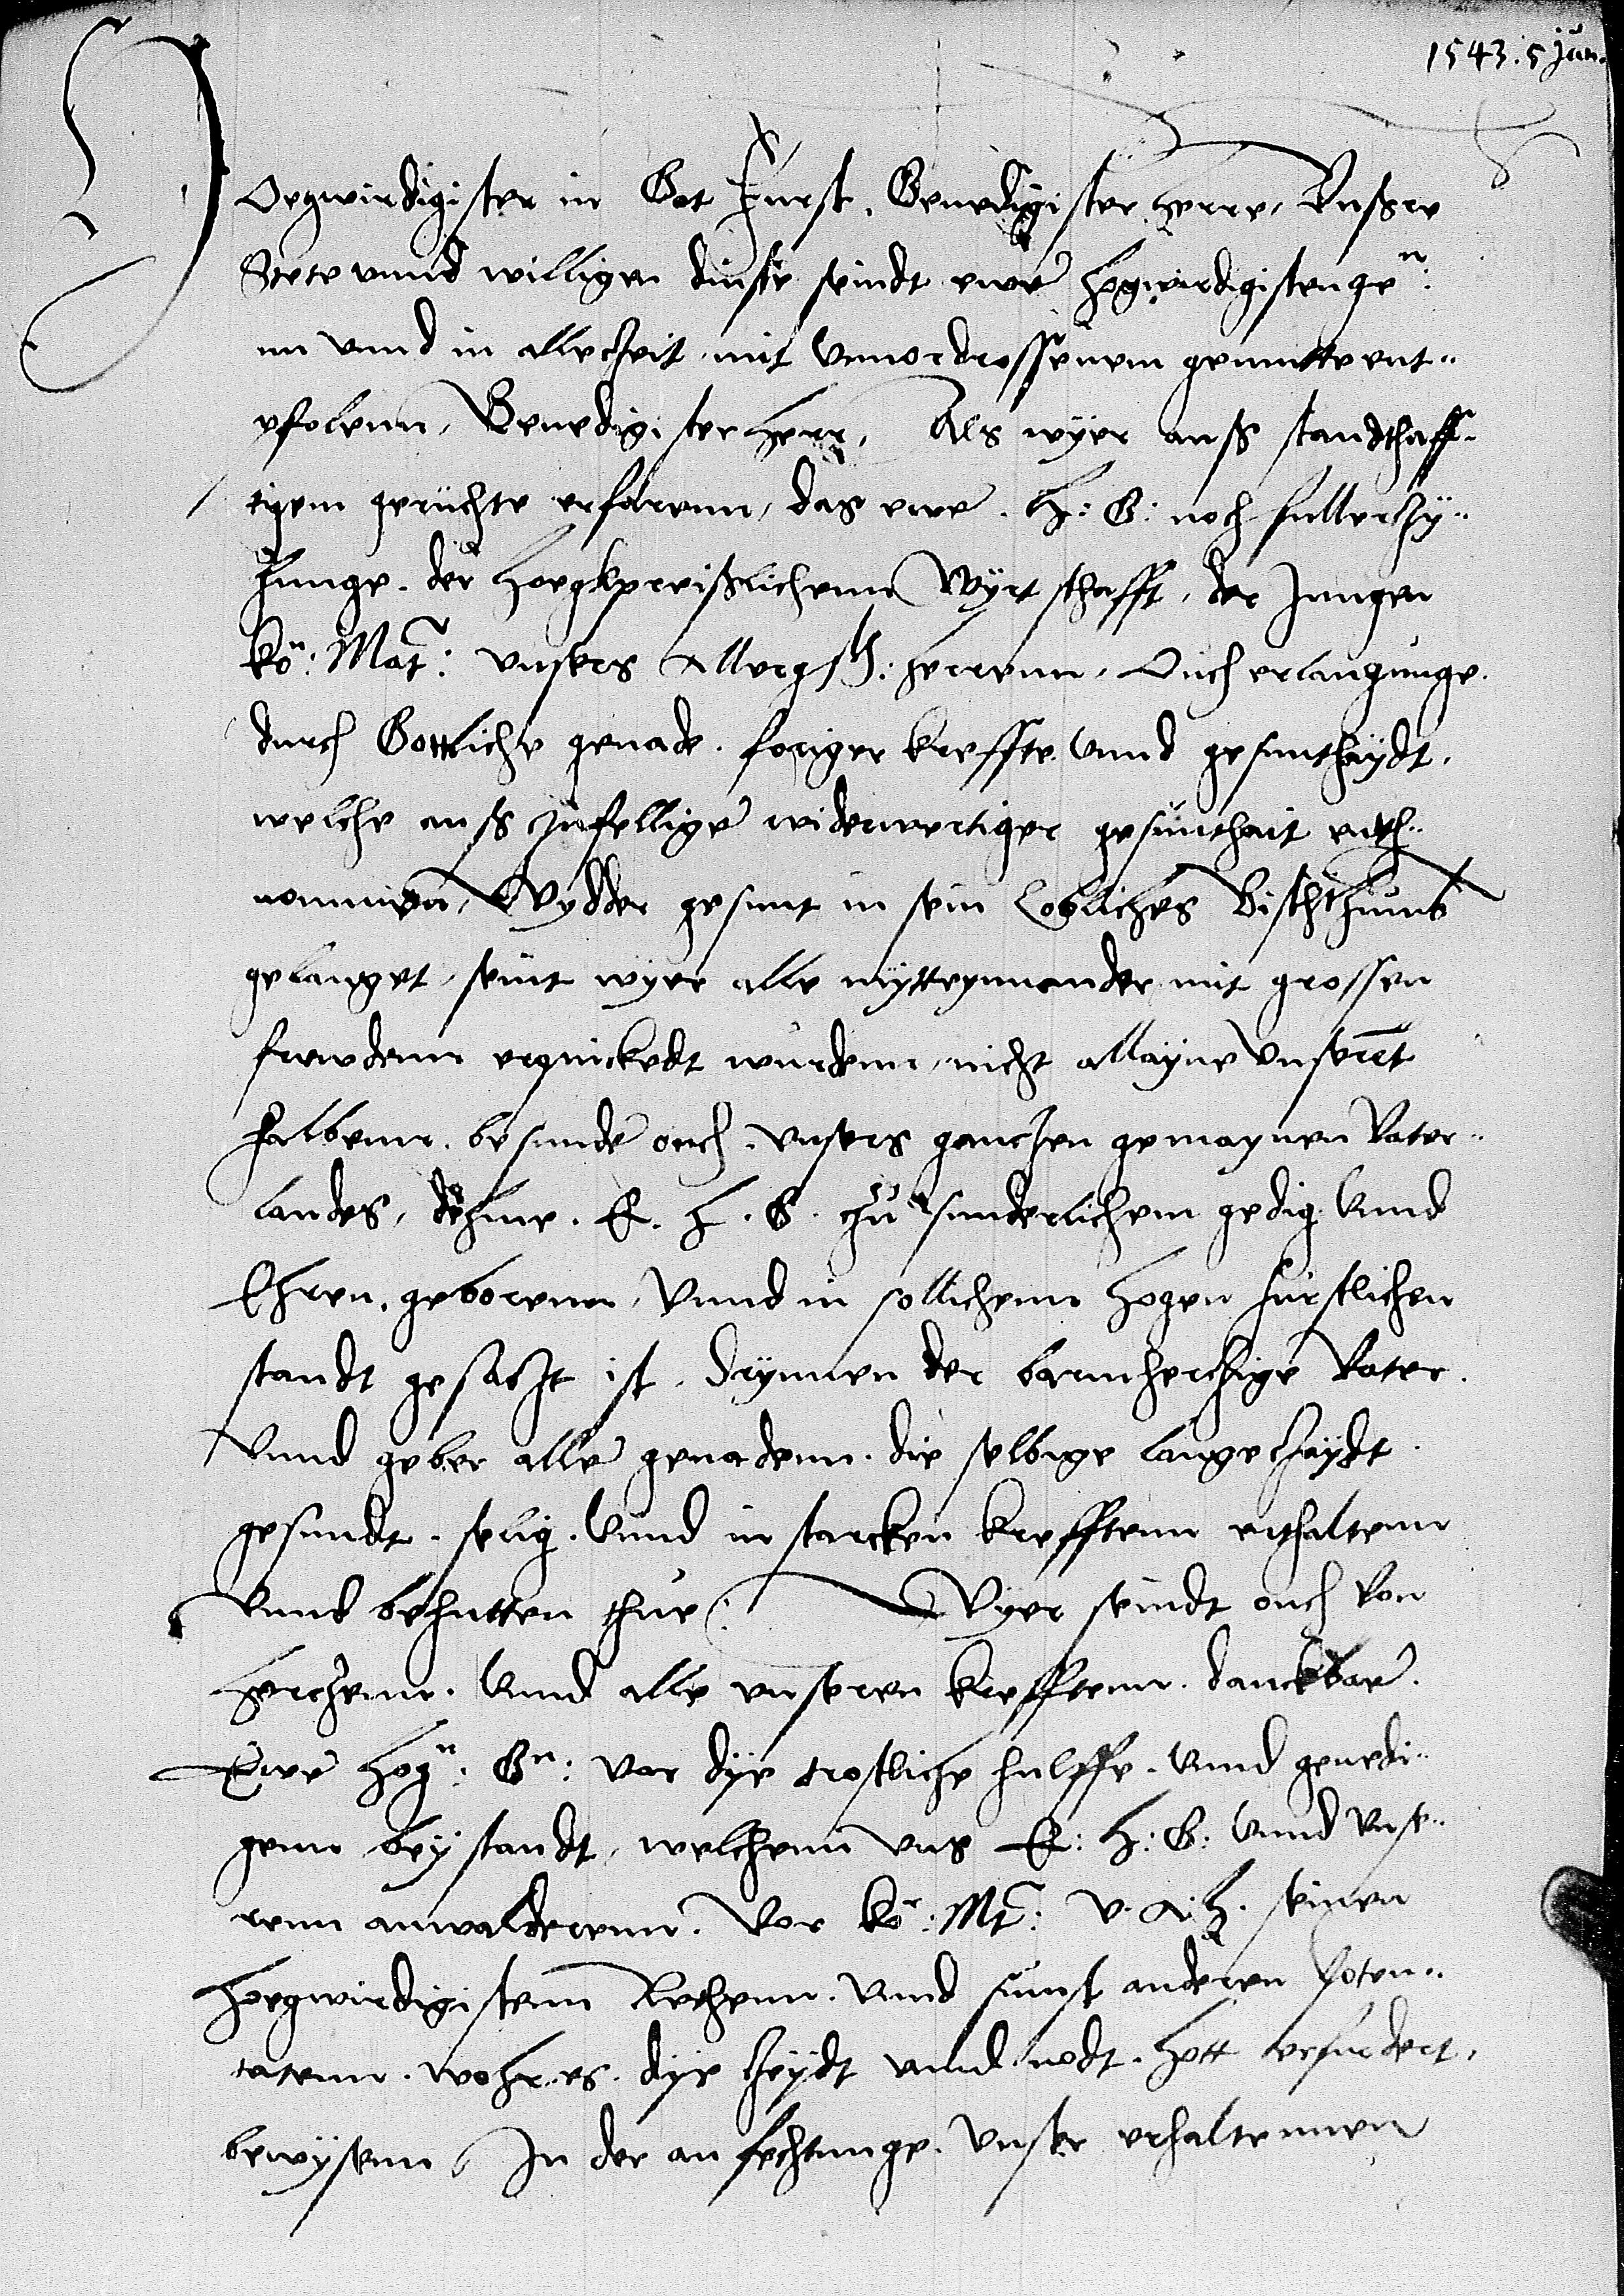 1543. 5 Jun.
Hogwirdigister in Got Furst. Genedigister herre, Unßre
Stete unnd willigen dinste seindt ewer hogwirdigisten ge^n:
nu unnd in alle czeit mit unvordrossenem gemutte ent„
pfolenn, Genedigister herr, Als wyer auß standthaff„
tigem geruchte erfarenn, das ewer. H: G: noch fullerczy„
hunge. der hoegkpreißlichenn Wyrtschafft, der Jungen
kö^n: Mat: unsers Allergst: herrenn, Ouch erlangunge.
durch Gottliche genade. foriger kreffte unnd gesunthaydt,
welche auß zufelliger widerwertiger gesunthait enth„
nommen, Wydder gesunt in sein Lobliches Bischthumb
gelanget, seint wyer alle mytteynnander mit grossen
frewdenn erquickedt wurdenn, nicht allayne unserent
halbenn. besunder ouch. unsers ganczen gemaynen Vater„
landes, dehme. E. H. G. zu sunderlichem gedig unnd
Ehren. geborenn, Unnd in sollichenn hogen fürstlichen
standt gesatzt ist. Drynnen der barmhercige Vater.
Unnd geber aller genadenn. die selbige lange czaydt.
gesundt. selig. Unnd in starcken krefftenn erthaltenn
unnd behutten thue: Wyer seindt ouch von
herczenn. Unnd alle unseren krefftenn. danckbar.
Ewer Hog^n: G^n: vor dye trostliche hulffe. Unnd genedi„
genn beystandt, welchenn uns E: H: G: Unnd unse„
renn anwalderenn. Vor kö^r: Mt: V. A. H. seinen
hoegwirdigistenn Rethenn. Unnd sunst anderen Poten„
tatenn. wohr es. dye czeydt unnd nodt. hott erfurdert,
bewysenn, In der anfechtunge. Unser erhaltennen